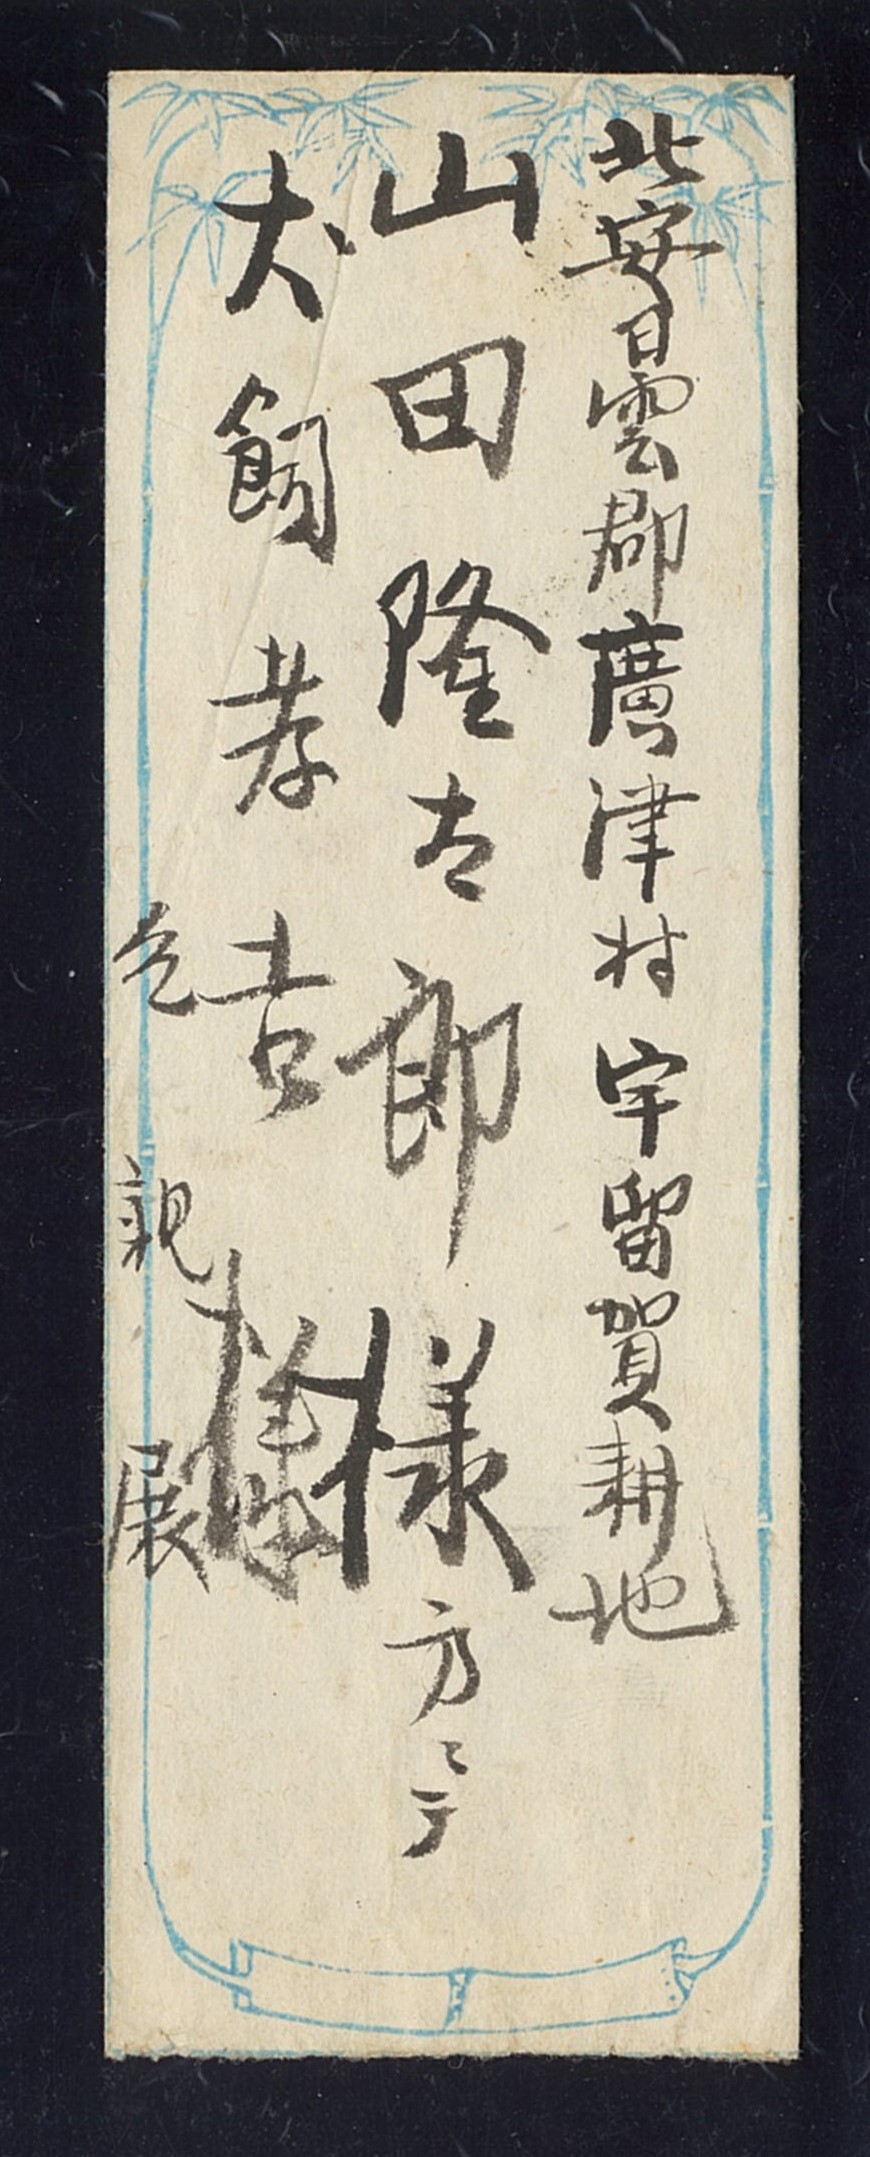 北安曇郡廣津村宇留賀耕地
山田隆太郎様方ニテ
犬飼孝吉様
乞親展